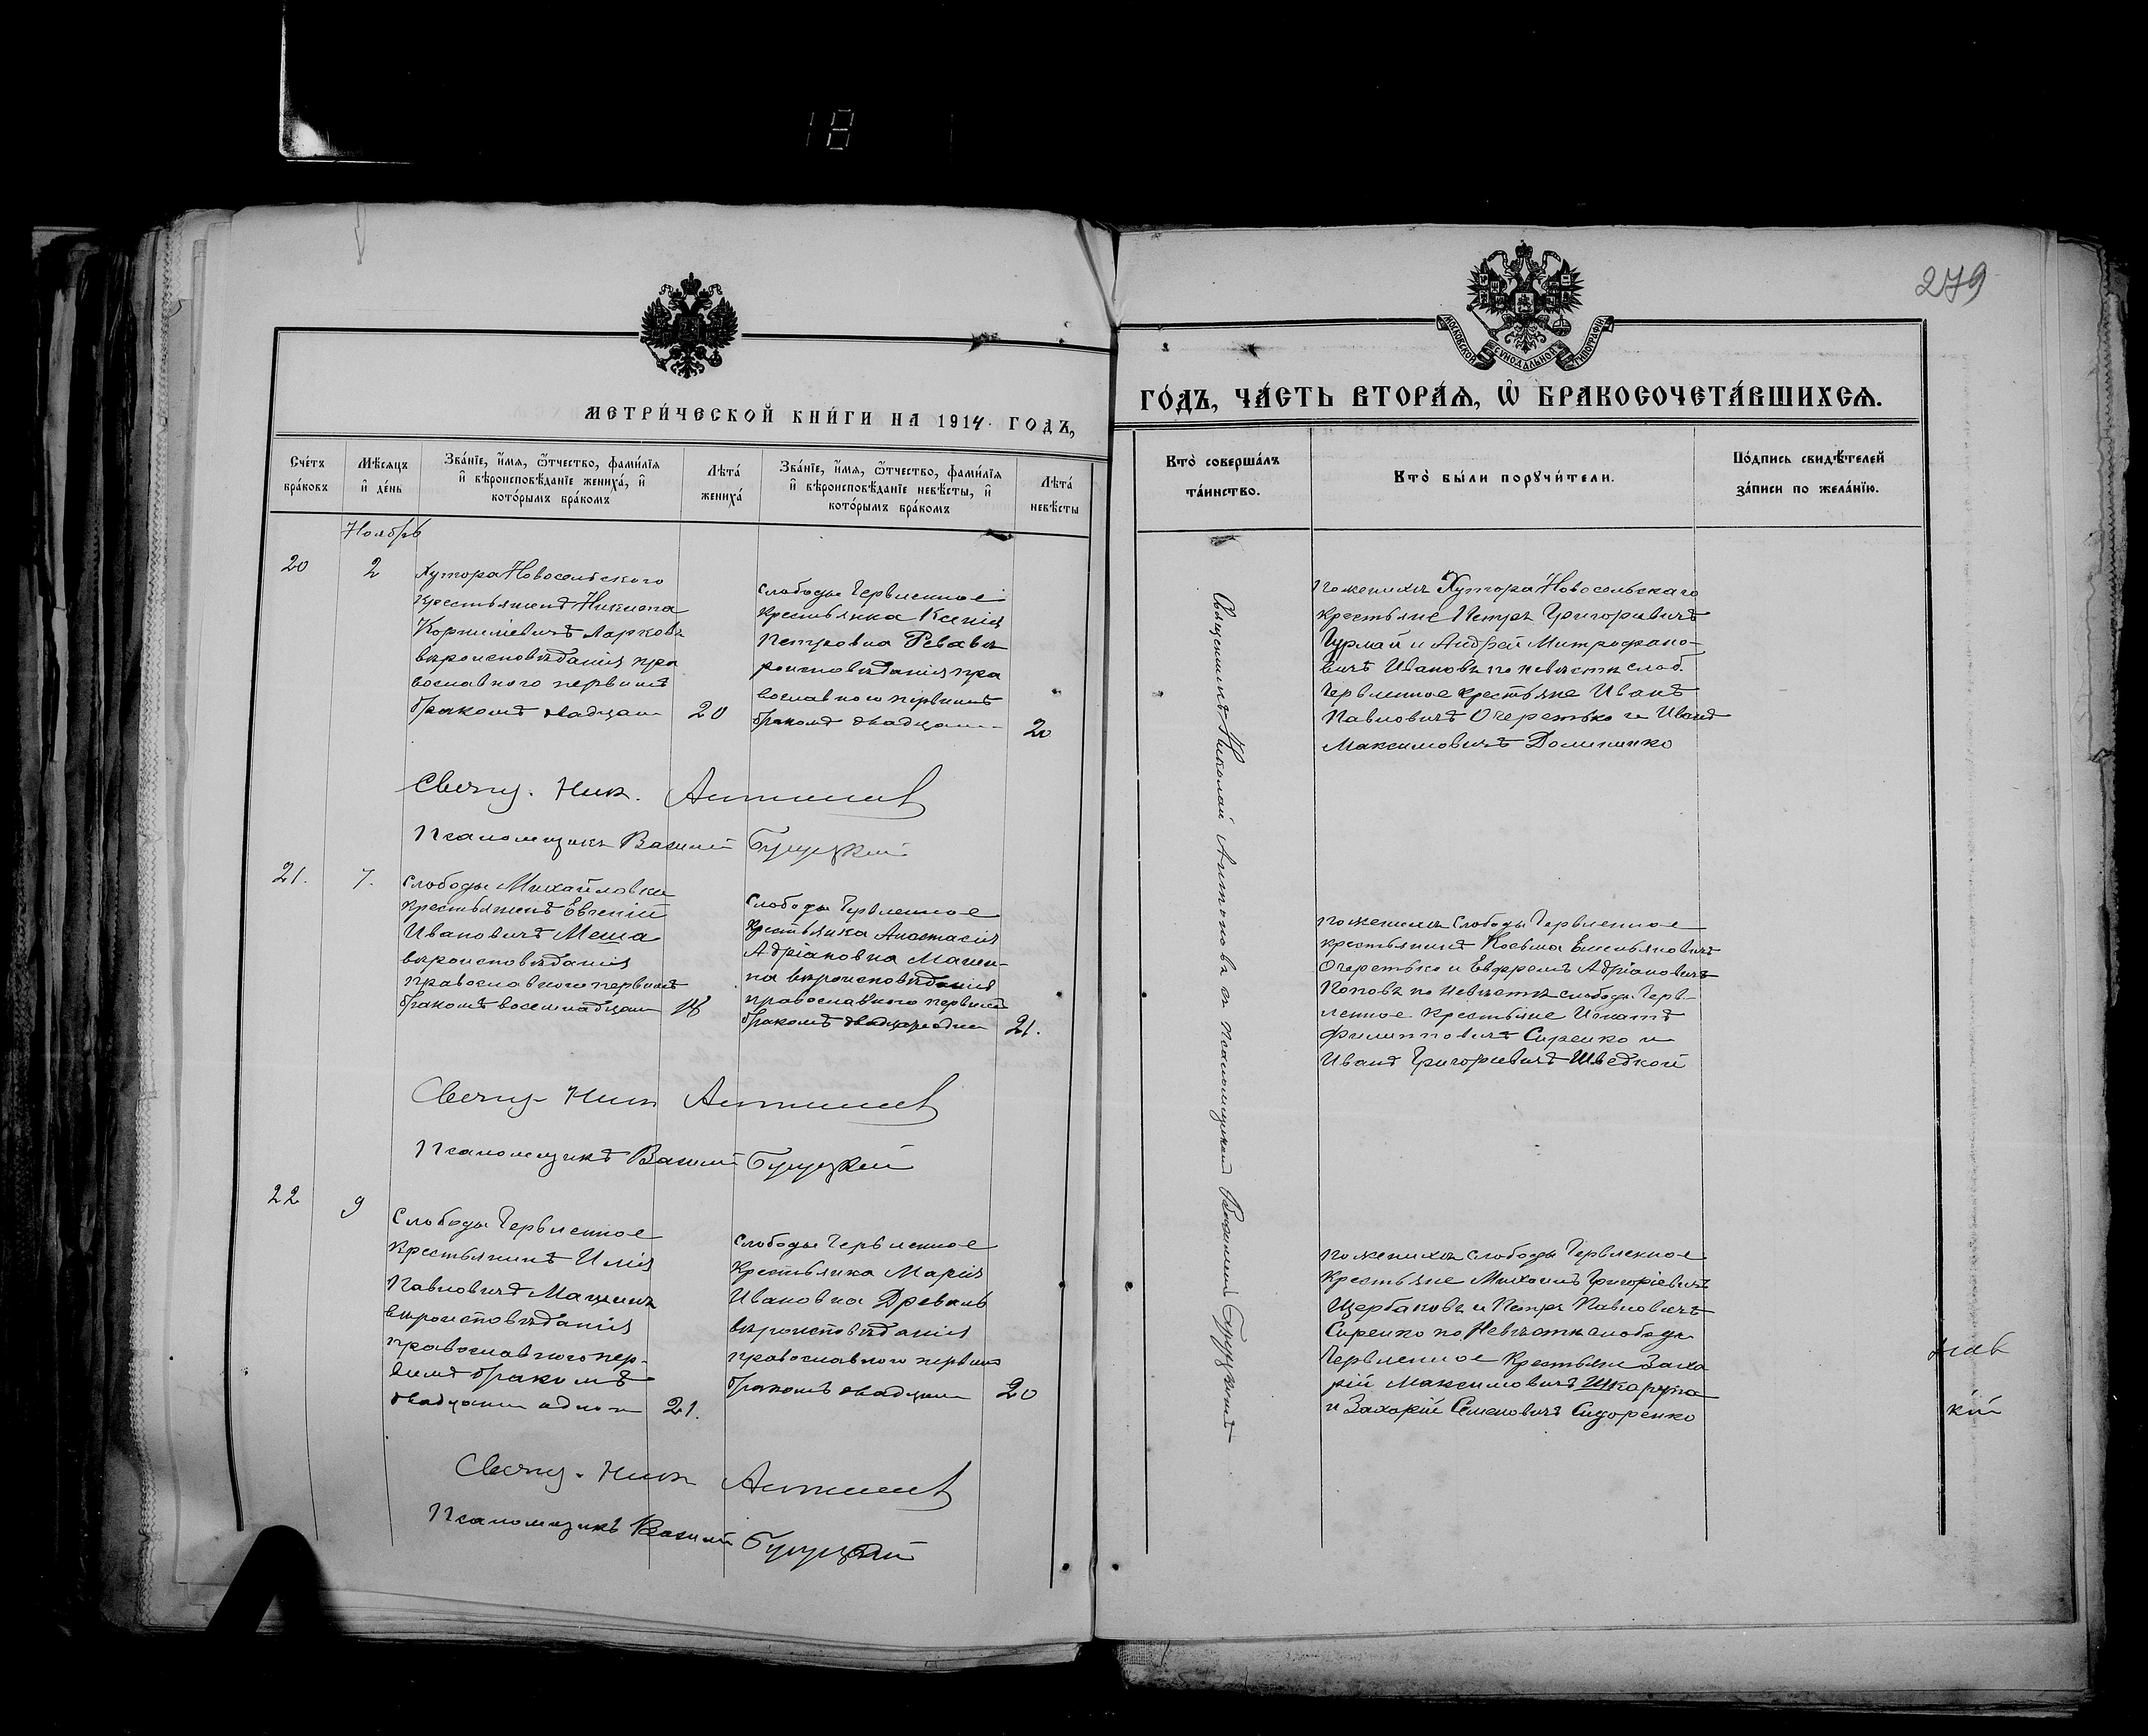 18
279
МОСКОВСКОЙ СѴНОДАЛЬНОЙ ТИПОГРАФІИ
МЕТРИ́ЧЕСКОЙ КНИ́ГИ НА 1914 ГОДЪ,
ГО́ДЪ, ЧА́СТЬ ВТОРА́Ѧ, Ѡ҆ БРАКОСОЧЕТА́ВШИХСѦ.
Сче́тъ бра́ковъ
Мѣ́сяцъ и҆ де́нь
Зва́нїе, и҆́мѧ, ѻ҆́тчество, фами́лїѧ и҆ вѣроисповѣ́данїе жениха́, и҆ кото́рымъ бра́комъ
Лѣта́ жениха́
Зва́нїе, и҆́мѧ, ѻ҆́тчество, фами́лїѧ и҆ вѣроисповѣ́данїе невѣ́сты, и҆ кото́рымъ бра́комъ
Лѣта́ невѣ́сты
Кто̀ соверша́лъ та́инство.
Кто̀ бы́ли порꙋчи́тели.
По́дпись свидѣ́телей за́писи по жела́нїю.
Ноябрь
20
2
Хутора Новосельского
крестьянинъ Никита
Корнилiевичъ Марковъ
вѣроисповѣданiя пра
вославного первымъ
бракомъ двадцати
20
слободы Червленное
крестьянка Ксенiя
Петровна Ревавѣ
роисповѣданiя пра
вославного первымъ
бракомъ двадцати
20
по женихѣ Хутора Новосельскаго
крестьяне Петръ Григорьевичъ
и Андрей Митрофано-
вичъ Ивановъ по невѣстѣ слоб.
Червленное крестьяне Иванъ
Павловичъ Очеретько и Иванъ
Максимовичъ
Свящ. Ник. Антонов
Псаломщикъ Василiй
21.
7.
слободы Михайловки
крестьянинъ Евгенiй
Ивановичъ Меша
вѣроисповѣданiя
православного первымъ
бракомъ восемнадцати
18
Слободы Червленное
крестьянка Анастасiя
Адрiановна
вѣроисповѣданiя
православного первымъ
бракомъ двадцати одни
21.
по женихѣ слободы Червленное
крестьянинъ Косьма Емельяновичъ
Очеретько и Ефремъ Адрiановичъ
Поповъ по невѣстѣ слободы Черв-
ленное крестьяне Игнатъ
Филипповичъ Сиренко и
Иванъ Григорiевичъ Шведкой
Свящ. Ник Антонов
Псаломщикъ Василiй
22
9
Слободы Червленное
крестьянинъ Илiя
Павловичъ
вѣроисповѣданiя
православного пер-
вымъ бракомъ
двадцати одного
21.
Слободы Червленное
Крестьянка Марiя
Ивановна Древаль
вѣроисповѣданiя
православного первымъ
бракомъ двадцати
20
по женихѣ слободы Червленное
Крестьяне Михаилъ Григорiевичъ
Щербаковъ и Петръ Павловичъ
Сиренко по Невѣстѣ слободы
Червленное Крестьяне Заха
рiй Максимовичъ Шкарупа
и Захарiй Семеновичъ Сидоренко
Свящ. Ник Антонов
Псаломщикъ Василiй
Священникъ Николай Антоновъ съ псаломщикомъ Василiемъ
кiй